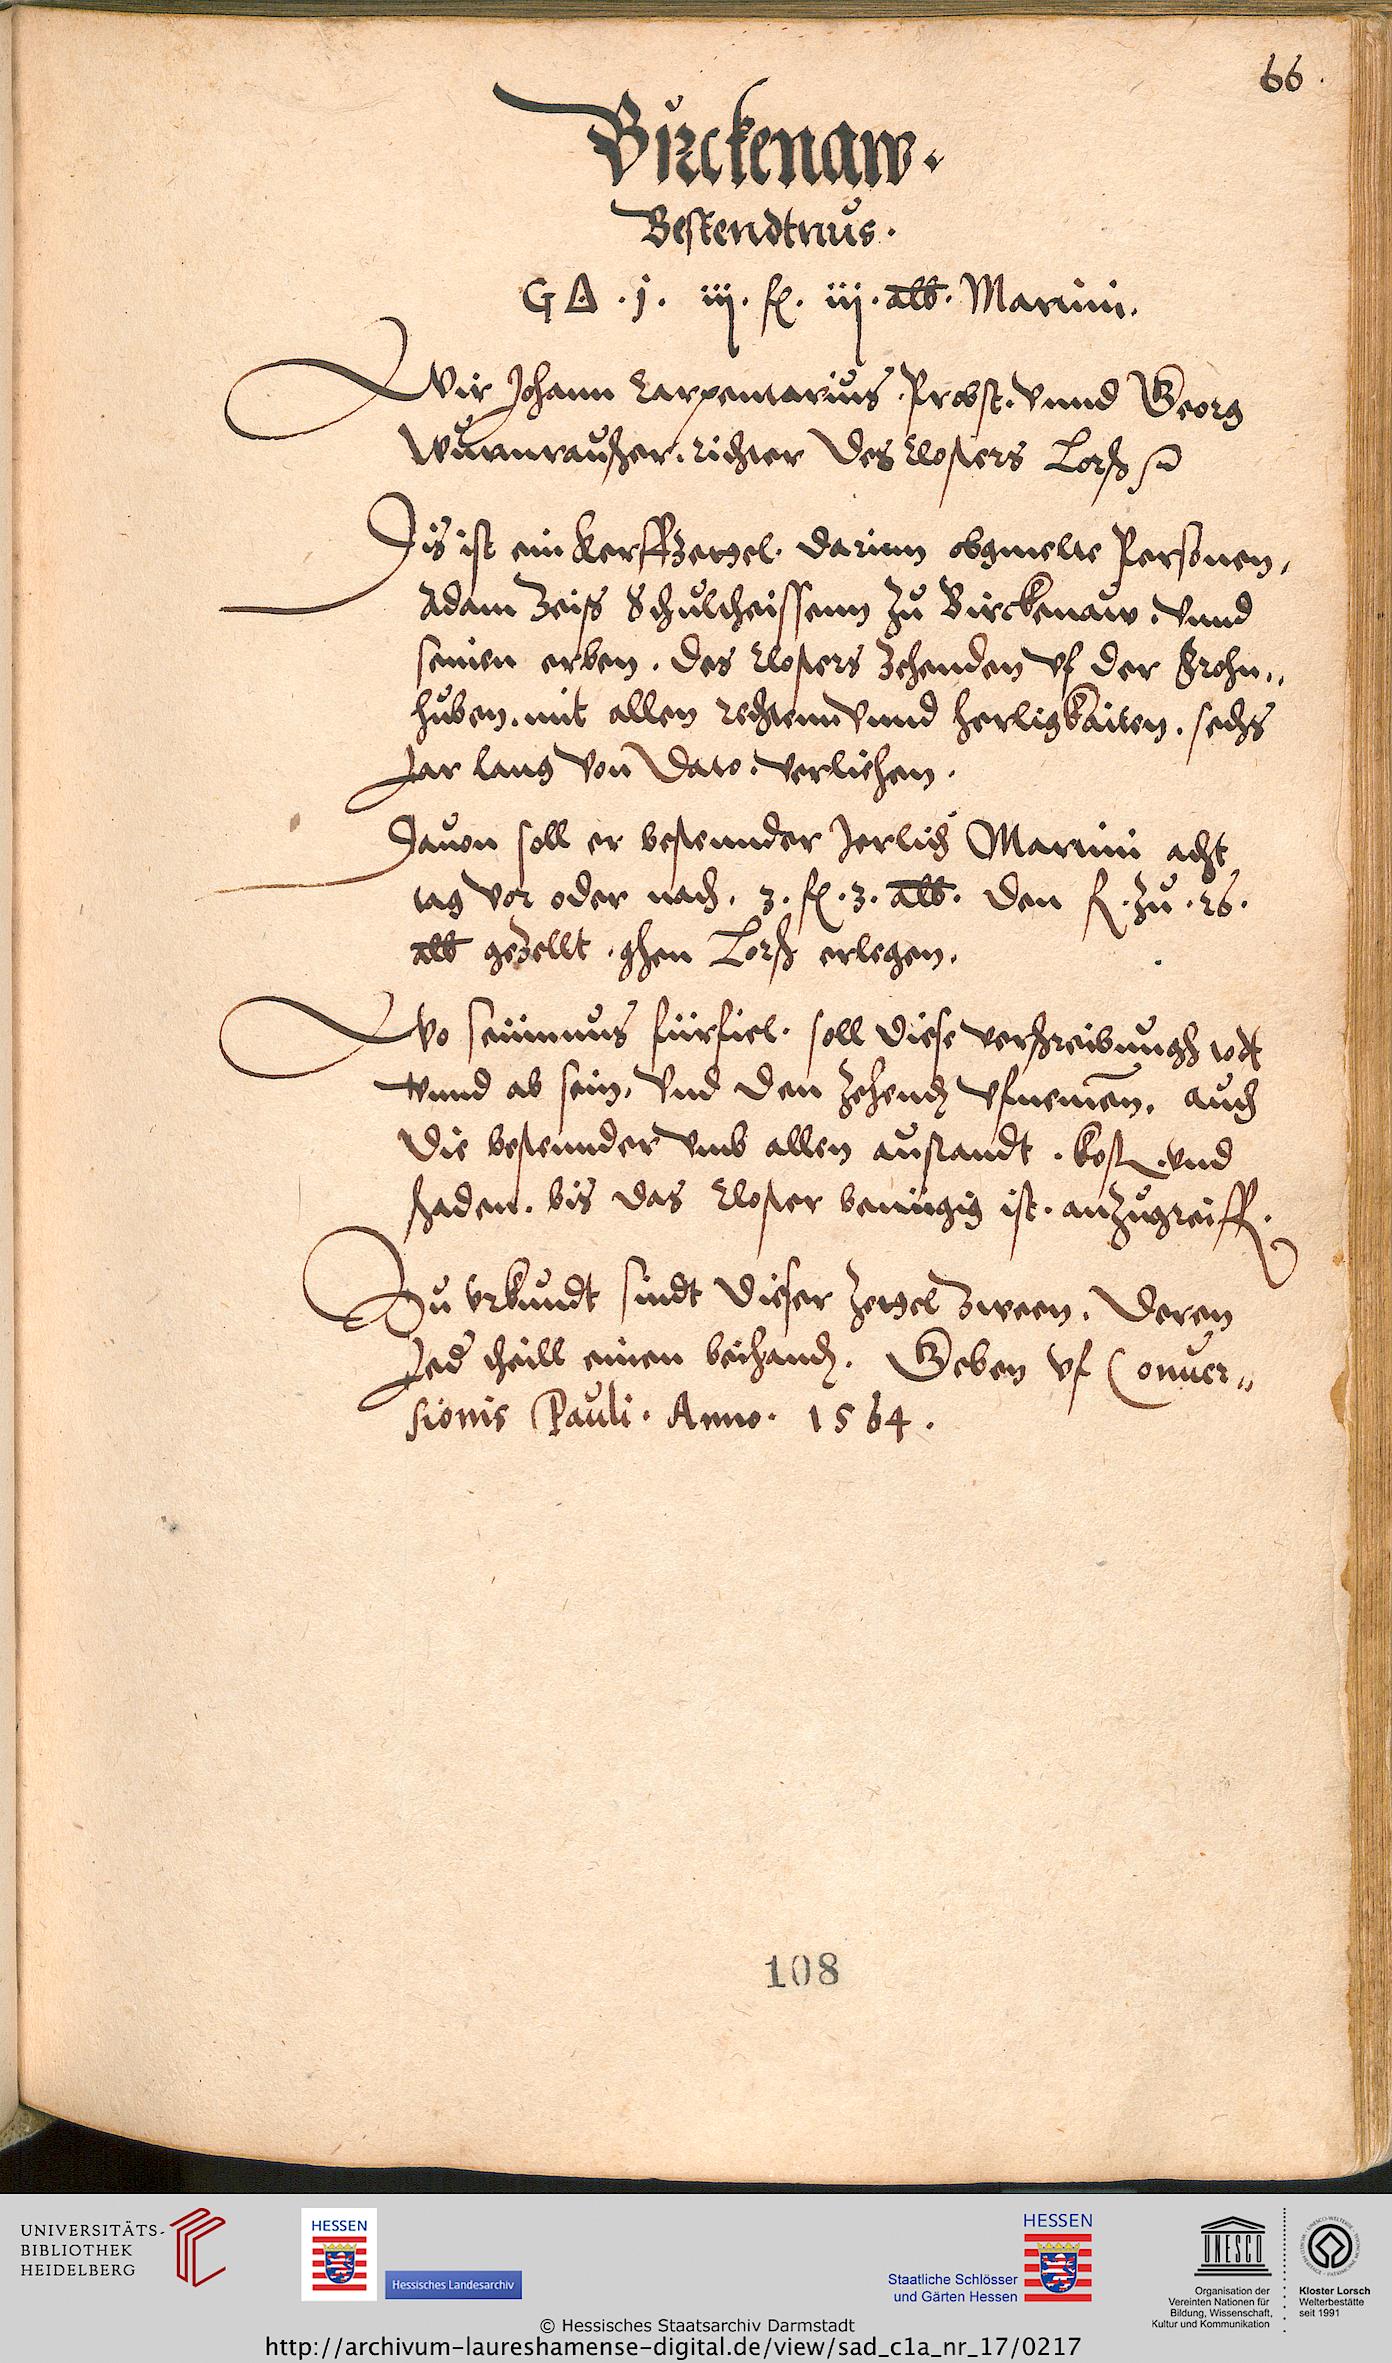 66.
Birckenaw.
Bestendtnus.
G Δ . j . iij . fl . iij . alb . Martini.
Wir Johann Carpentarius . Probst . vnnd Georg
Wurmrauscher . richter des closters Lorsch
Dis ist ein Kerffzettel . darinn obgmelte Personen,
Adam Zeiß Schultheissenn zu Birckenaw . vnnd
seinen erben . des closters Zehenden vf der Frohn„
huben . mit allen rechtenn vnnd herligkaiten . sechs
Jar lang von dato . verlichen .
Dauon soll er bestennder Jerlich Martini acht
tag vor oder nach . 3 . fl . 3 . alb . den fl . zu . 26 .
alb gezellt . ghen Lorsch erlegen .
Wo seümnus fürfiel . soll diese verschreibungh todt
vnnd ab sein . vnd den zehend vfnemen . auch
die bestennder vmb allen austandt . kost . vnd
schaden . bis das closter benügig ist . anzugreiff .
Zu vrkundt sindt dieser zettel zween . deren
Jed theill einen beihand . Geben vf Conuer„
sionis Pauli . Anno . 1564 .
108
UNIVERSITÄTS-
BIBLIOTHEK
HEIDELBERG
HESSEN
Hessisches Landesarchiv
Staatliche Schlösser
und Gärten Hessen
HESSEN
UNESCO
Organisation der
Vereinten Nationen für
Bildung, Wissenschaft,
Kultur und Kommunikation
Kloster Lorsch
Welterbestätte
seit 1991
© Hessisches Staatsarchiv Darmstadt
http://archivum-laureshamense-digital.de/view/sad_c1a_nr_17/0217